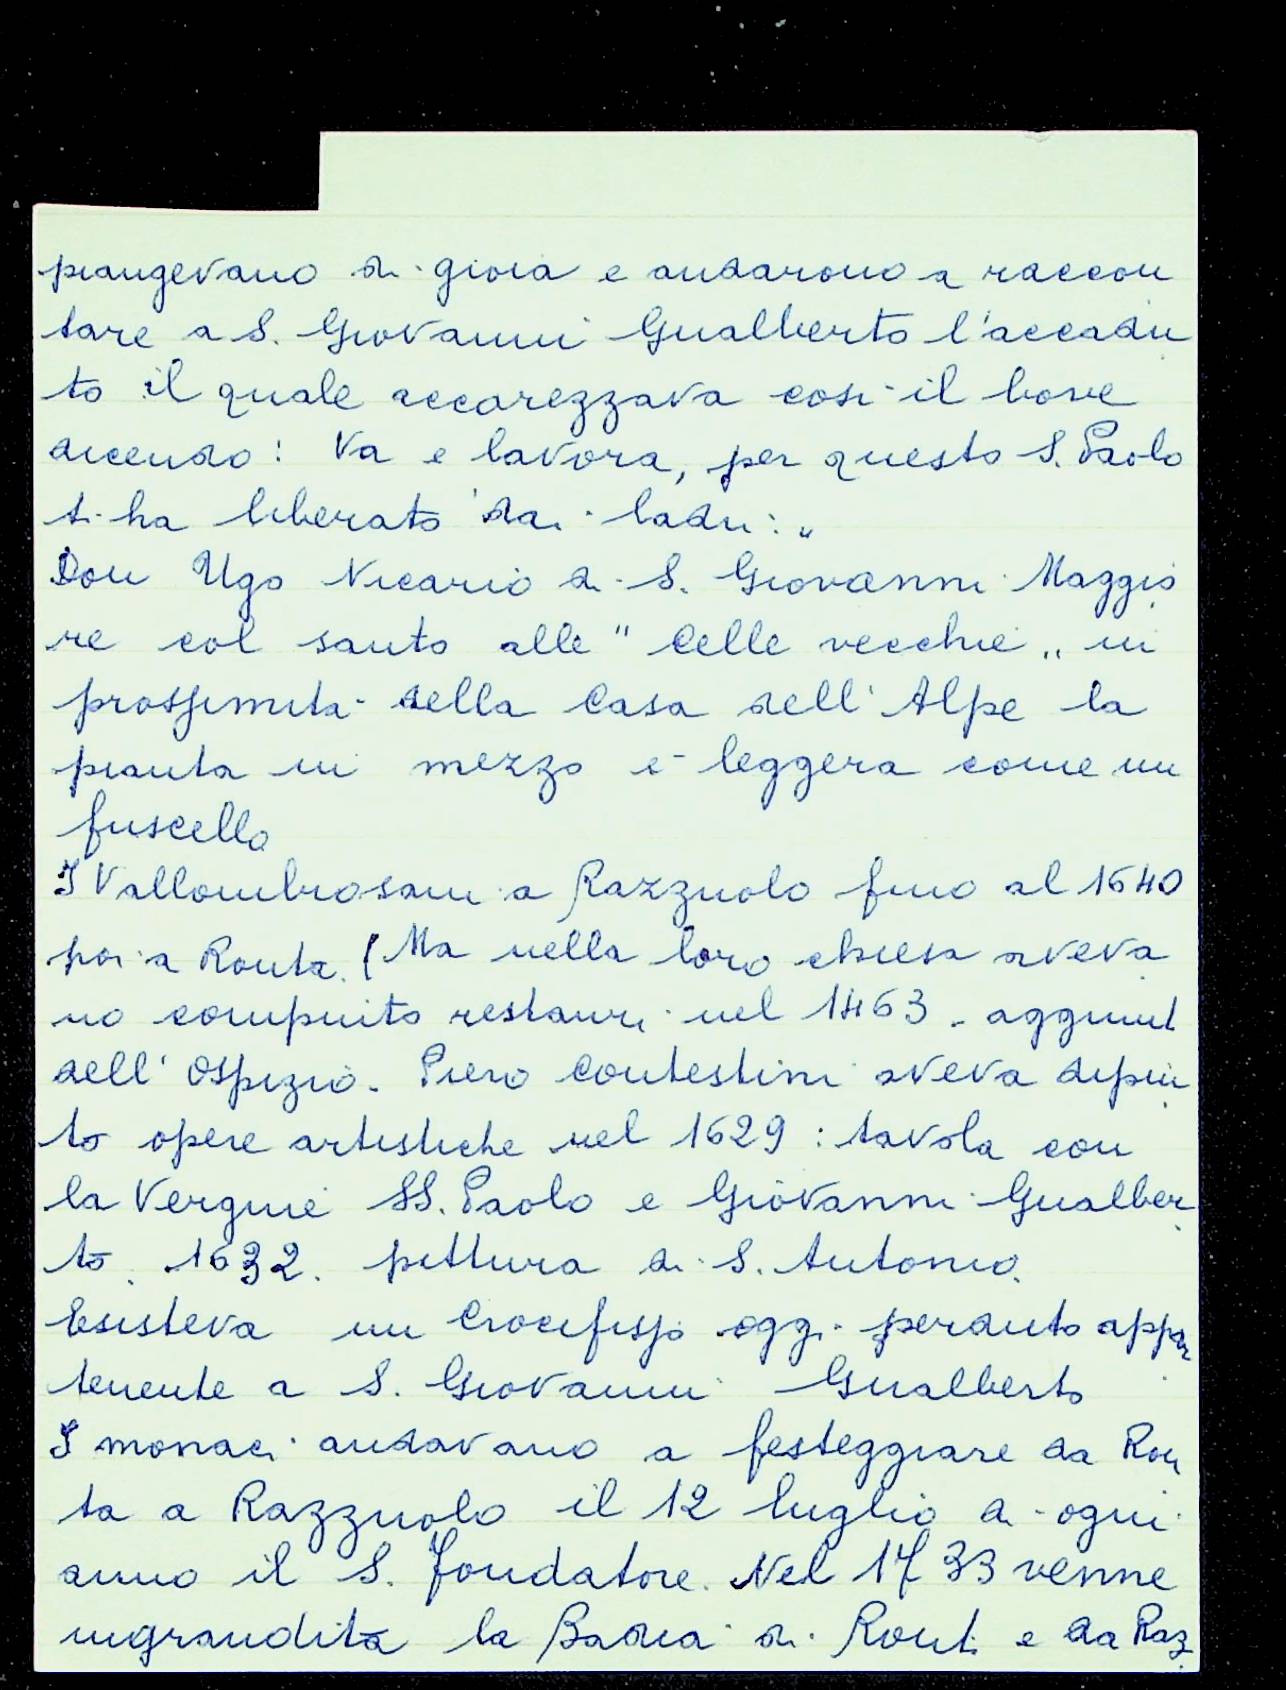 piangevano di gioia e andarono a raccon
tare a S. Giovanni Gualberto l'accadu
to il quale accarezzava così il bove
dicendo: Va e lavora, per questo S. Paolo
ti ha liberato dai ladri: „
Don Ugo Vicario di S. Giovanni Maggio
re col santo alle " Celle vecchie „ in
prossimità della Casa dell'Alpe la
pianta in mezzo è leggera come un
fuscello
I Vallombrosani a Razzuolo fino al 1640
poi a Ronta. (Ma nella loro chiesa aveva
no compiuto restauri nel 1463 - aggiunt
dell'Ospizio. Piero Contestini aveva dipin
to opere artistiche nel 1629 : tavola con
la Vergine SS. Paolo e Giovanni Gualber
to. 1632. pittura di S. Antonio.
Esisteva un Crocifisso oggi perduto appar
tenente a S. Giovanni Gualberto
I monaci andavano a festeggiare da Ron
ta a Razzuolo il 12 luglio di ogni
anno il S. fondatore. Nel 1733 venne
ingrandita la Badia di Ront. e da Raz